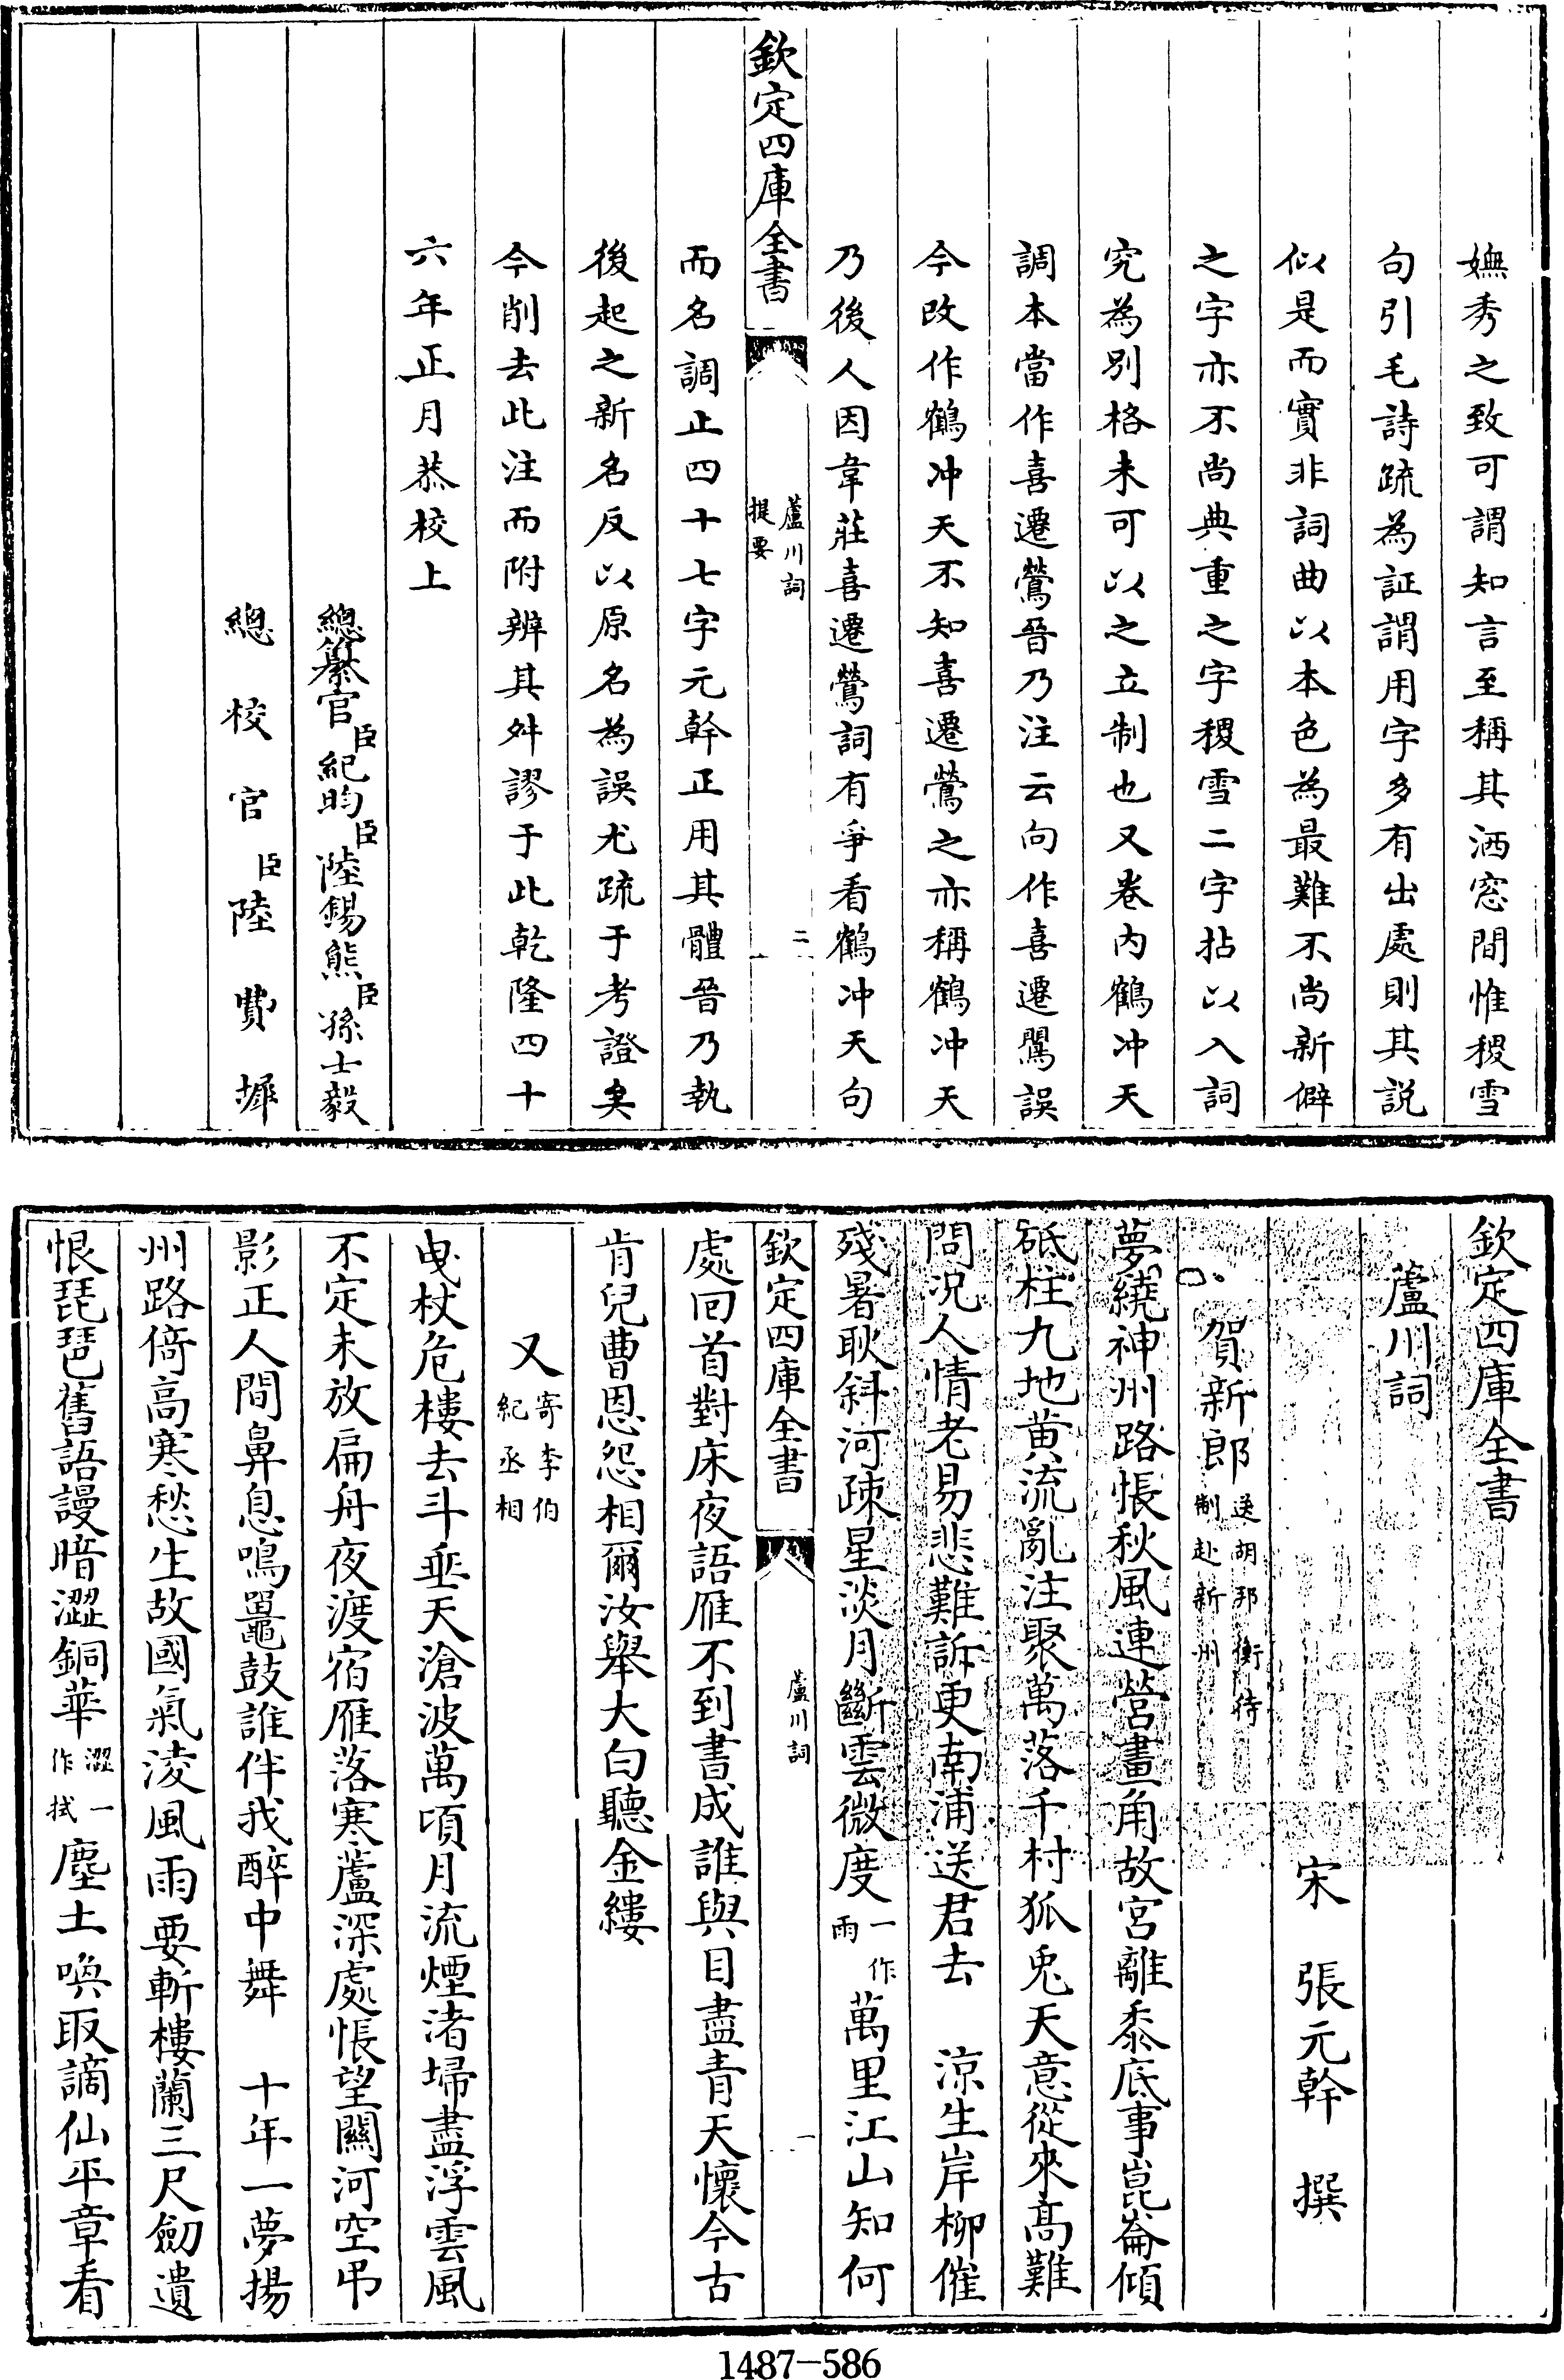 嫵秀之致可謂知言至稱其洒窓間惟稷雪
句引毛詩疏為証謂用字多有出處則其説
似是而實非詞曲以本色為最難不尚新僻
之字亦不尚典重之字稷雪二字拈以入詞
究為別格未可以之立制也又卷内鶴冲天
調本當作喜遷鶯晉乃注云向作喜遷鶯誤
今改作鶴冲天不知喜遷鶯之亦稱鶴冲天
乃後人因韋莊喜遷鶯詞有爭看鶴冲天句
欽定四庫全書
蘆川詞
提要
二
而名調止四十七字元幹正用其體晉乃執
後起之新名反以原名為誤尤疏于考證矣
今削去此注而附辨其舛謬于此乾隆四十
六年正月恭校上
總纂官臣紀昀臣陸錫熊臣孫士毅
總校官臣陸費墀
欽定四庫全書
蘆川詞
宋 張元幹 撰
賀新郎 送胡邦衡待
制赴新州
夢繞神州路悵秋風連營畫角故宮離黍底事崑崙傾
砥柱九地黄流亂注聚萬落千村狐兎天意從來髙難
問況人情老易悲難訴更南浦送君去 涼生岸柳催
殘暑耿斜河疎星淡月斷雲微度一作
雨萬里江山知何
欽定四庫全書
蘆川詞
一
處回首對床夜語雁不到書成誰與目盡青天懷今古
肯兒曹恩怨相爾汝舉大白聽金縷
又 寄李伯
紀丞相
曳杖危樓去斗垂天滄波萬頃月流煙渚埽盡浮雲風
不定未放扁舟夜渡宿雁落寒蘆深處悵望關河空弔
影正人間鼻息鳴鼉鼓誰伴我醉中舞 十年一夢揚
州路倚高寒愁生故國氣淩風雨要斬樓蘭三尺劒遺
恨琵琶舊語謾暗澀銅華澀一
作拭塵土喚取謫仙平章看
1487-586